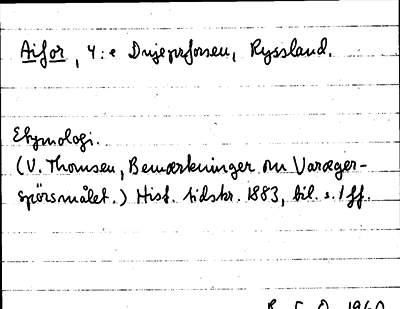 Aifor, 4:e Dnjeprforsen, Ryssland.
Etymologi.
(V. Thomsen, Bemærkninger om Varæger-
spörsmålet.) Hist. tidskr. 1883, bil. s. 1 ff.
1960